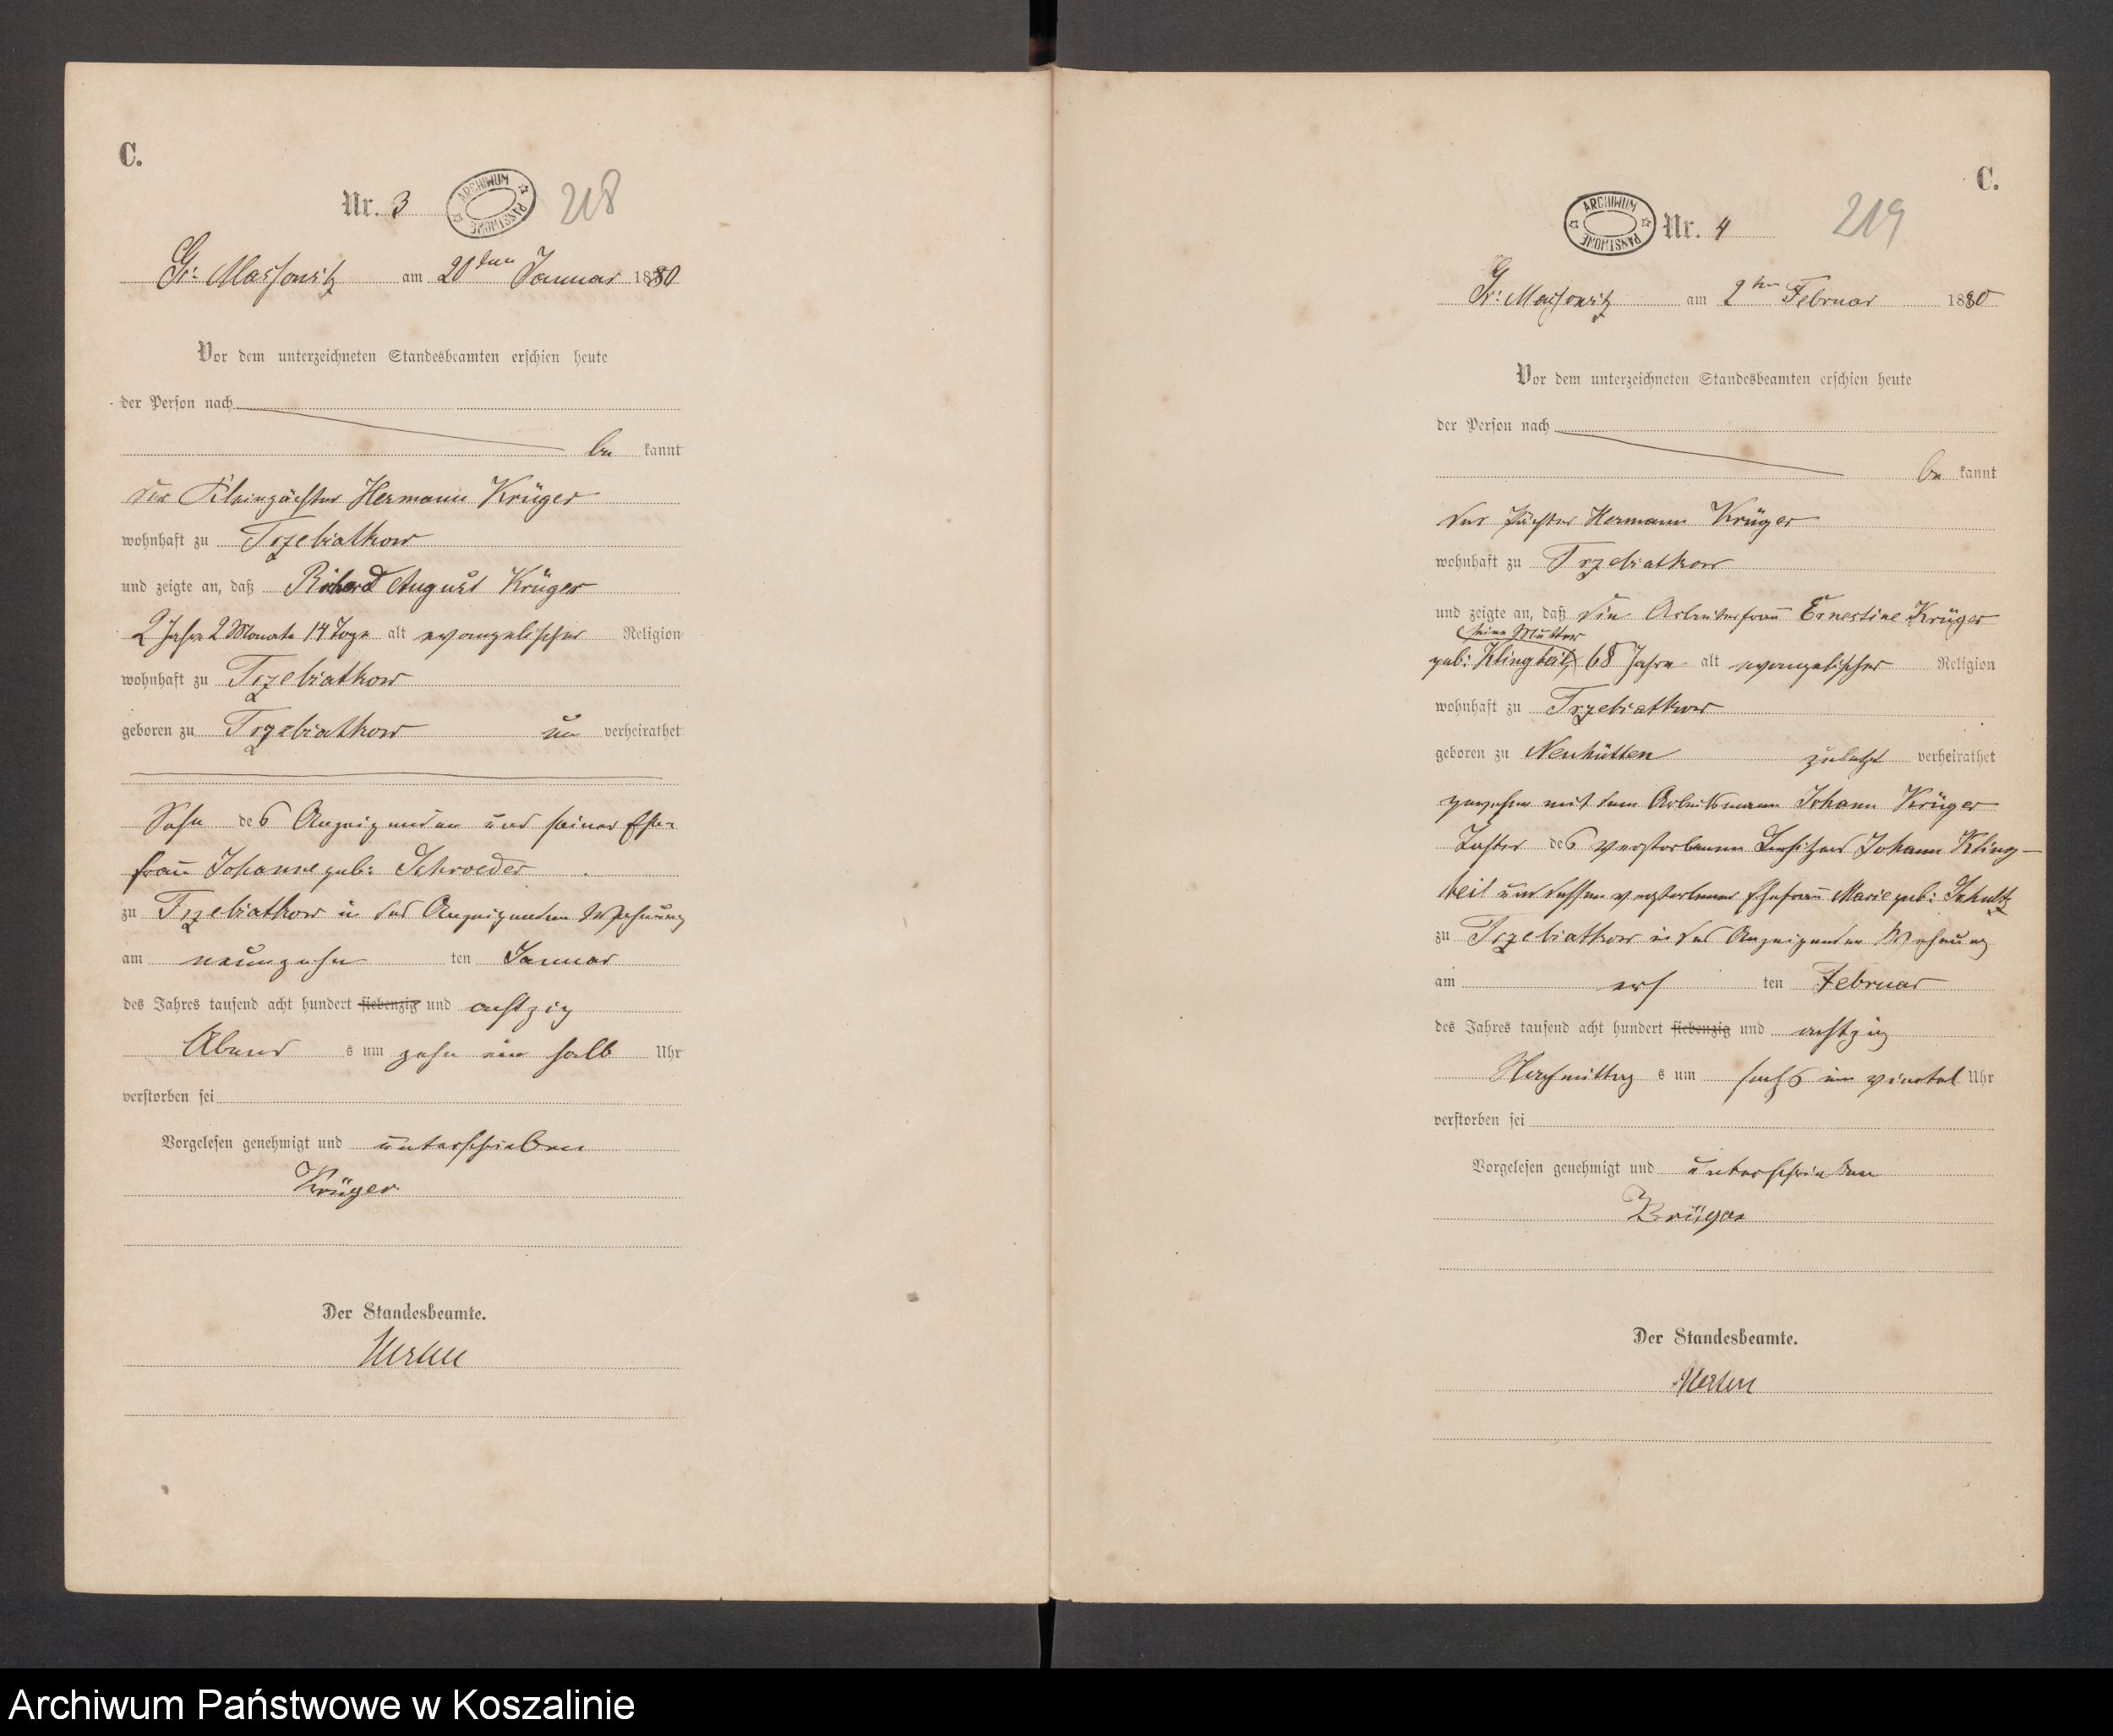 C.
Nr. 3
ARCHIWUM PAŃSTWOWE
218
Gr: Massowitz am 20ten Januar 1880
Vor dem unterzeichneten Standesbeamten erschien heute
der Person nach
be kannt
der Kleinpächter Hermann Krüger
wohnhaft zu Trzebiatkow
und zeigte an, daß Richard August Krüger
2 Jahre 2 Monate 14 Tage alt evangelischer Religion
wohnhaft zu Trzebiatkow
geboren zu Trzebiatkow un verheirathet
Sohn des Anzeigenden und seiner Ehe-
frau Johanne geb: Schroeder
zu Trzebiatkow in des Anzeigenden Wohnung
am neunzehn ten Januar
des Jahres tausend acht hundert siebenzig und achtzig
Abend s um zehn ein halb Uhr
verstorben sei
Vorgelesen genehmigt und unterschrieben
Krüger
Der Standesbeamte.
C.
ARCHIWUM PAŃSTWOWE
Nr. 4
219
Gr: Massowitz am 2ten Februar 1880
Vor dem unterzeichneten Standesbeamten erschien heute
der Person nach
be kannt
der Pächter Hermann Krüger
wohnhaft zu Trzebiatkow
und zeigte an, daß die Arbeiterfrau Ernestine Krüger
seine Mutter
geb: Klingbeil, 68 Jahre alt evangelischer Religion
wohnhaft zu Trzebiatkow
geboren zu Neuhütten zuletzt verheirathet
gewesen mit dem Arbeitsmann Johann Krüger
Tochter des verstorbenen Besitzers Johann Kling-
beil und dessen verstorbener Ehefrau Marie geb: Schultz
zu Trzebiatkow in des Anzeigenden Wohnung
am ers ten Februar
des Jahres tausend acht hundert siebenzig und achtzig
Nachmittag s um sechs ein viertel Uhr
verstorben sei
Vorgelesen genehmigt und unterschrieben
Krüger
Der Standesbeamte.
Archiwum Państwowe w Koszalinie